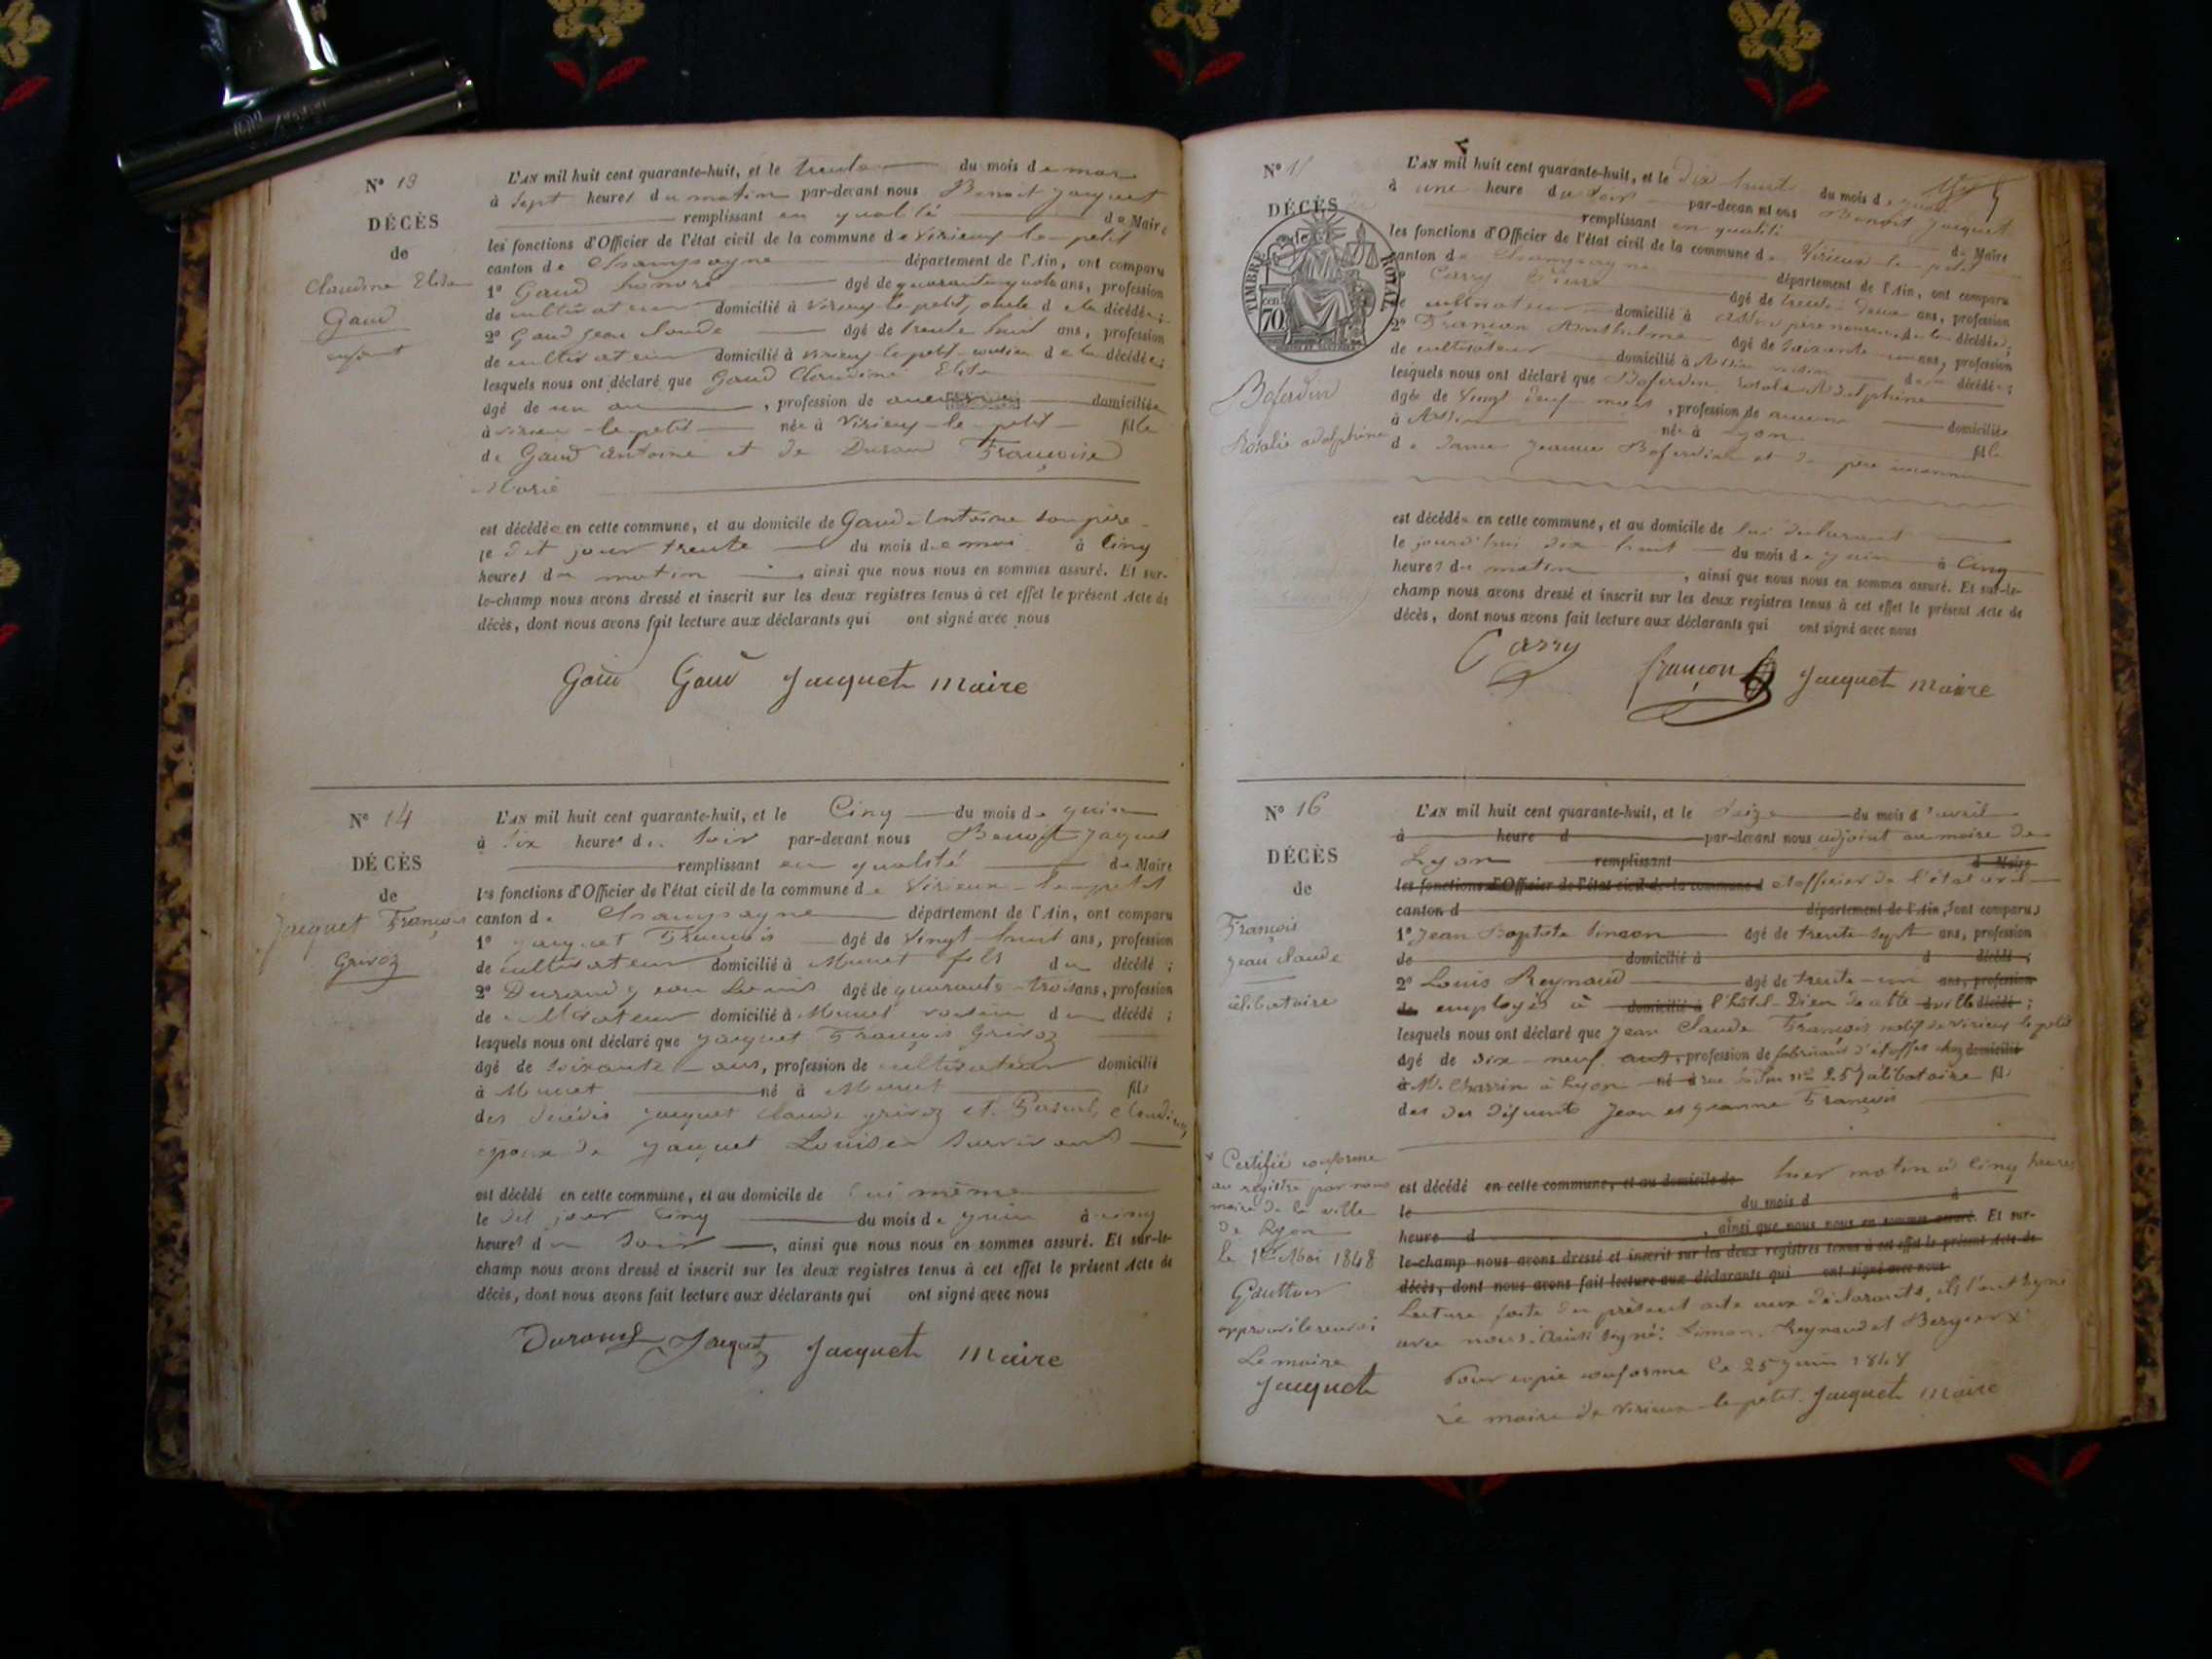 N° 13
DÉCÈS
de
Claudine Elisa
Gaud
enfant
L'AN mil huit cent quarante-huit, et le trente du mois de mai
à Sept heures du matin par-devant nous Benoit Jacquet
remplissant en qualité de Maire
les fonctions d'Officier de l'état civil de la commune de Virieux-le-petit
canton de Champagne département de l'Ain, ont comparu
1° Gaud honoré âgé de quarante quatre ans, profession
de cultivateur domicilié à Virieux le petit, oncle d e la décédée;
2° Gaud Jean Claude âgé de trente huit ans, profession
de cultivateur domicilié à Virieux-le-petit cousin d e la décédée;
lesquels nous ont déclaré que Gaud Claudine Elisa
âgé de un an, profession de domiciliée
à Virieu-le-petit née à Virieux-le-petit fille
de Gaud Antoine et de Durand Françoise
Marie
est décédée en cette commune, et au domicile de Gaud Antoine son père
le dit jour trente du mois de mai à Cinq
heures du matin, ainsi que nous nous en sommes assuré. Et sur-
le-champ nous avons dressé et inscrit sur les deux registres tenus à cet effet le présent Acte de
décès, dont nous avons fait lecture aux déclarants qui ont signé avec nous
Gaud Gaud Jacquet Maire
N° 14
DÉCÈS
de
Jacquet François
Grivoz
L'AN mil huit cent quarante-huit, et le Cinq du mois de juin
à Six heures du Soir par-devant nous Benoit Jacquet
remplissant en qualité de Maire
les fonctions d'Officier de l'état civil de la commune de Virieux-le-petit
canton de Champagne département de l'Ain, ont comparu
1° Jacquet François âgé de Vingt-huit ans, profession
de cultivateur domicilié à Munet fils du décédé;
2° Durand Jean Louis âgé de quarante-trois ans, profession
de cultivateur domicilié à Munet voisin du décédé;
lesquels nous ont déclaré que Jacquet François Grivoz
âgé de soixante ans, profession de cultivateur domicilié
à Munet né à Munet fils
des décédés Jacquet Claude Grivoz et Claudine
époux de Jacquet Louise Survivant
est décédé en cette commune, et au domicile de lui même
le dit jour Cinq du mois de juin à cinq
heures du Soir, ainsi que nous nous en sommes assuré. Et sur-le-
champ nous avons dressé et inscrit sur les deux registres tenus à cet effet le présent Acte de
décès, dont nous avons fait lecture aux déclarants qui ont signé avec nous
Durand Jacquet Jacquet Maire
N° 15
DÉCÈS
TIMBRE ROYAL
70
Boferdin
Rosalie adolphine
L'AN mil huit cent quarante-huit, et le dix huit du mois de juin
à une heure du Soir par-devant nous Benoit Jacquet
remplissant en qualité de Maire
les fonctions d'Officier de l'état civil de la commune de Virieux-le-petit
canton de Champagne département de l'Ain, ont comparu
Carry âgé de trente-deux ans, profession
de cultivateur domicilié à père nourricier de la décédée;
2° Françon Anthelme âgé de soixante un ans, profession
de cultivateur domicilié à voisin de la décédée;
lesquels nous ont déclaré que Boferdin Rosalie Adolphine
âgée de Vingt neuf mois, profession de aucune domiciliée
à née à Lyon fille
de dame Jeanne Boferdin et de père inconnu
est décédée en cette commune, et au domicile de lui déclarant
le jourd'hui dix huit du mois de juin à Cinq
heures du matin, ainsi que nous nous en sommes assuré. Et sur-le-
champ nous avons dressé et inscrit sur les deux registres tenus à cet effet le présent Acte de
décès, dont nous avons fait lecture aux déclarants qui ont signé avec nous
Carry
françon Jacquet Maire
N° 16
DÉCÈS
de
François
Jean Claude
célibataire
L'AN mil huit cent quarante-huit, et le Seize du mois d'avril
à heure d par-devant nous adjoint au maire de
Lyon remplissant d Maire
les fonctions d'Officier de l'état civil de la commune d et officier de l'état civil
canton d département de l'Ain, sont comparus
1° Jean Baptiste Simeon âgé de trente-sept ans, profession
de domicilié à d décédé;
2° Louis Reynaud âgé de trente-un ans, profession
de employés à domicilié à l'hôtel-Dieu de cette ville décédé;
lesquels nous ont déclaré que Jean Claude François natif de Virieux le petit
âgé de dix-neuf ans, profession de fabricant d'étoffes chez domicilié
à Mr Charrin à Lyon né à rue 25 célibataire fils
des des défunts Jean et Jeanne François
est décédé en cette commune, et au domicile de hier matin à Cinq heures
le du mois d à
heure d, ainsi que nous nous en sommes assuré. Et sur-
le-champ nous avons dressé et inscrit sur les deux registres tenus à cet effet le présent Acte de
décès, dont nous avons fait lecture aux déclarants qui ont signé avec nous
Lecture faite du présent acte aux déclarants, ils l'ont signé
avec nous. Ainsi signé: Simon, Reynaud et Bergier x
Pour copie conforme le 25 juin 1848
Le maire de Virieux-le-petit Jacquet Maire
x Certifié conforme
au registre par nous
maire de la ville
de Lyon
le 1er Mai 1848
Gauthier
approuvé le renvoi
Le maire
Jacquet